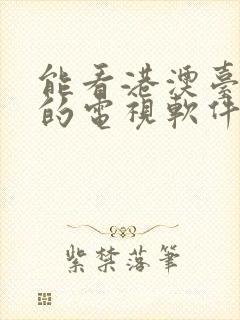 能看港澳臺
的電視軟件
紫禁落筆